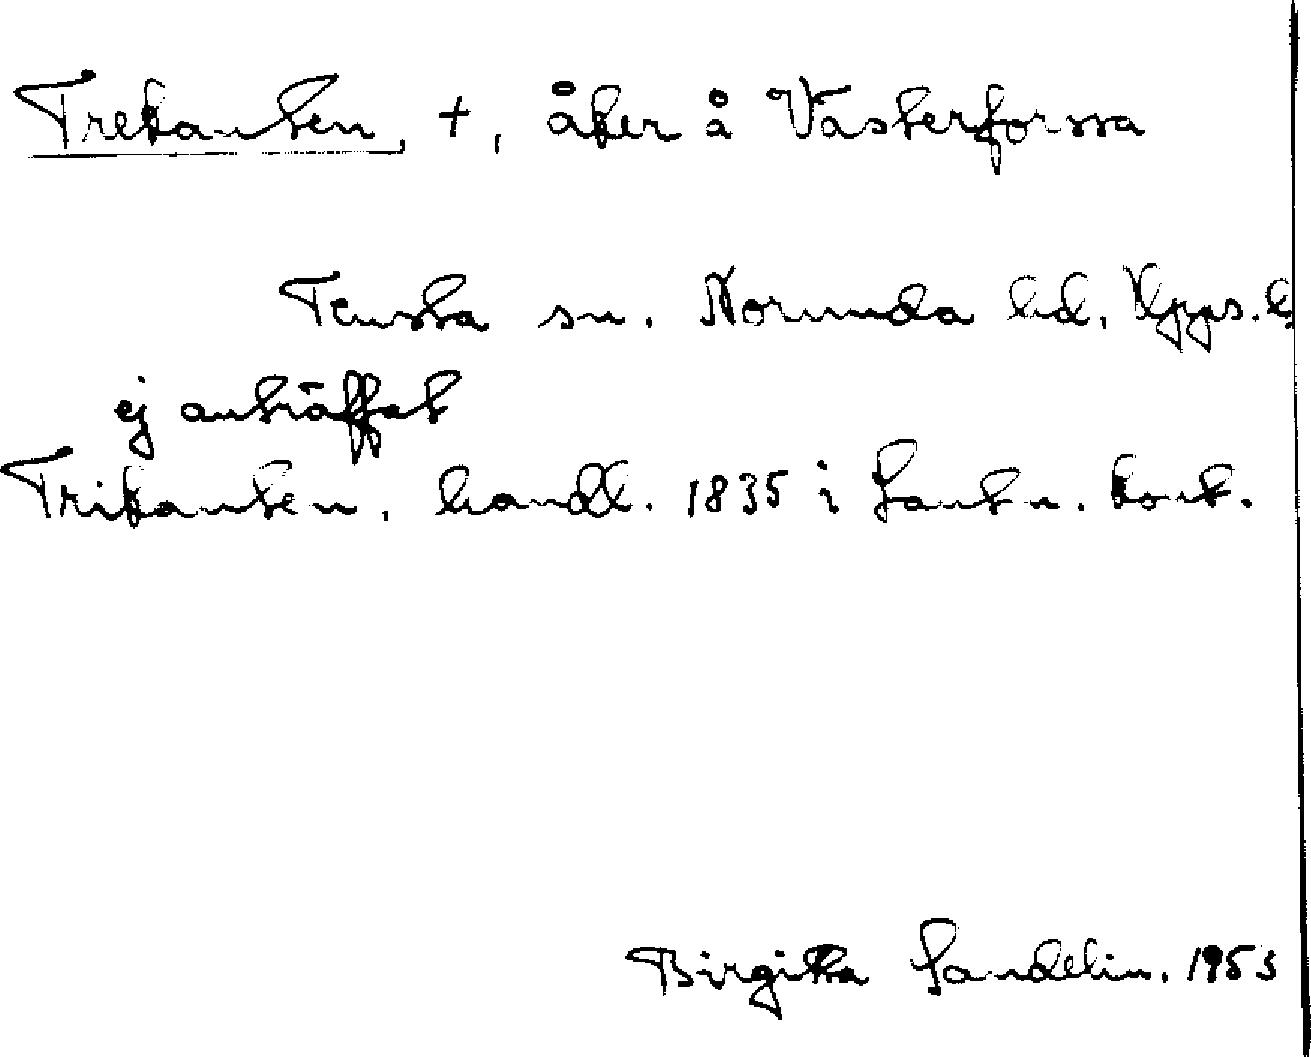 Trekanten, +, åker å Västerforssa
Tensta sn. Norunda hd. Upps. l
ej anträffat
Trikanten, handl. 1835 i Lantm. kont.
Birgitta Sandelin. 1953